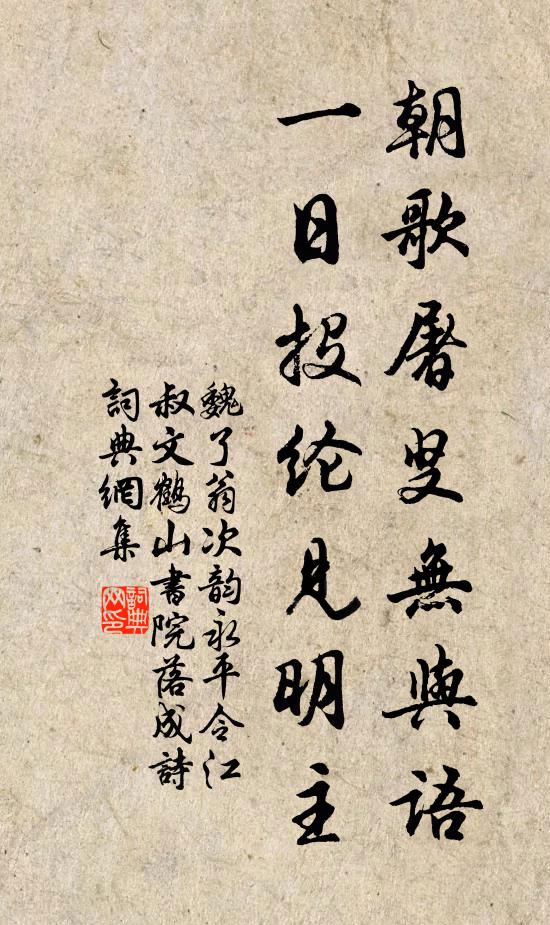 朝歌屠叟無與語
一日投纶見明主
魏了翁次韵永平令江
叔文鶴山書院落成詩
詞典網集
詞典网印